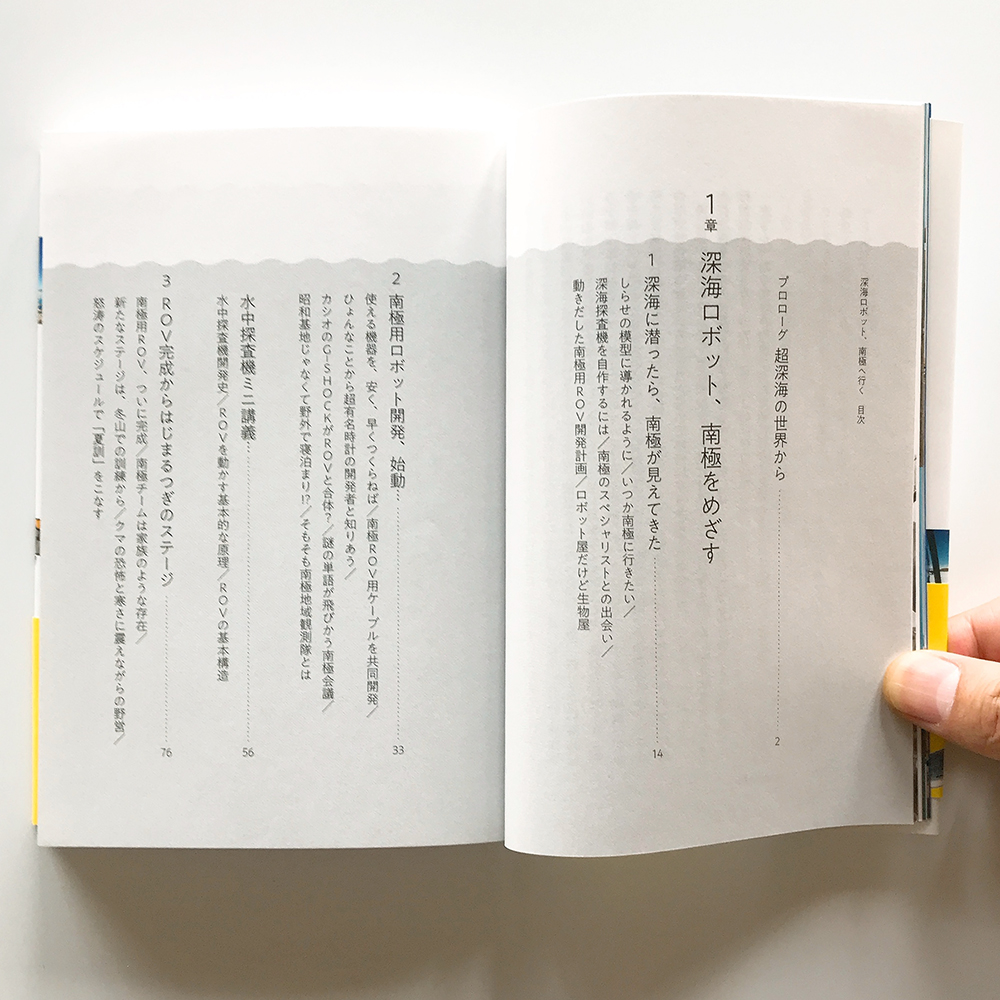 深海ロボット、南極へ行く 目次
プロローグ 超深海の世界から 2
1章 深海ロボット、南極をめざす
1 深海に潜ったら、南極が見えてきた 14
しらせの模型に導かれるように/いつか南極に行きたい/
深海探査機を自作するには/南極のスペシャリストとの出会い/
動きだした南極用ROV開発計画/ロボット屋だけど生物屋
2 南極用ロボット開発、始動 33
使える機器を、安く、早くつくらねば/南極ROV用ケーブルを共同開発/
ひょんなことから超有名時計の開発者と知りあう/
カシオのG-SHOCKがROVと合体?/謎の単語が飛びかう南極会議/
昭和基地じゃなくて野外で寝泊まり!?/そもそも南極地域観測隊とは
水中探査機ミニ講義 56
水中探査機開発史/ROVを動かす基本的な原理/ROVの基本構造
3 ROV完成からはじまるつぎのステージ 76
南極用ROV、ついに完成/南極チームは家族のような存在/
新たなステージは、冬山での訓練から/クマの恐怖と寒さに震えながらの野営/
怒涛のスケジュールで「夏訓」をこなす